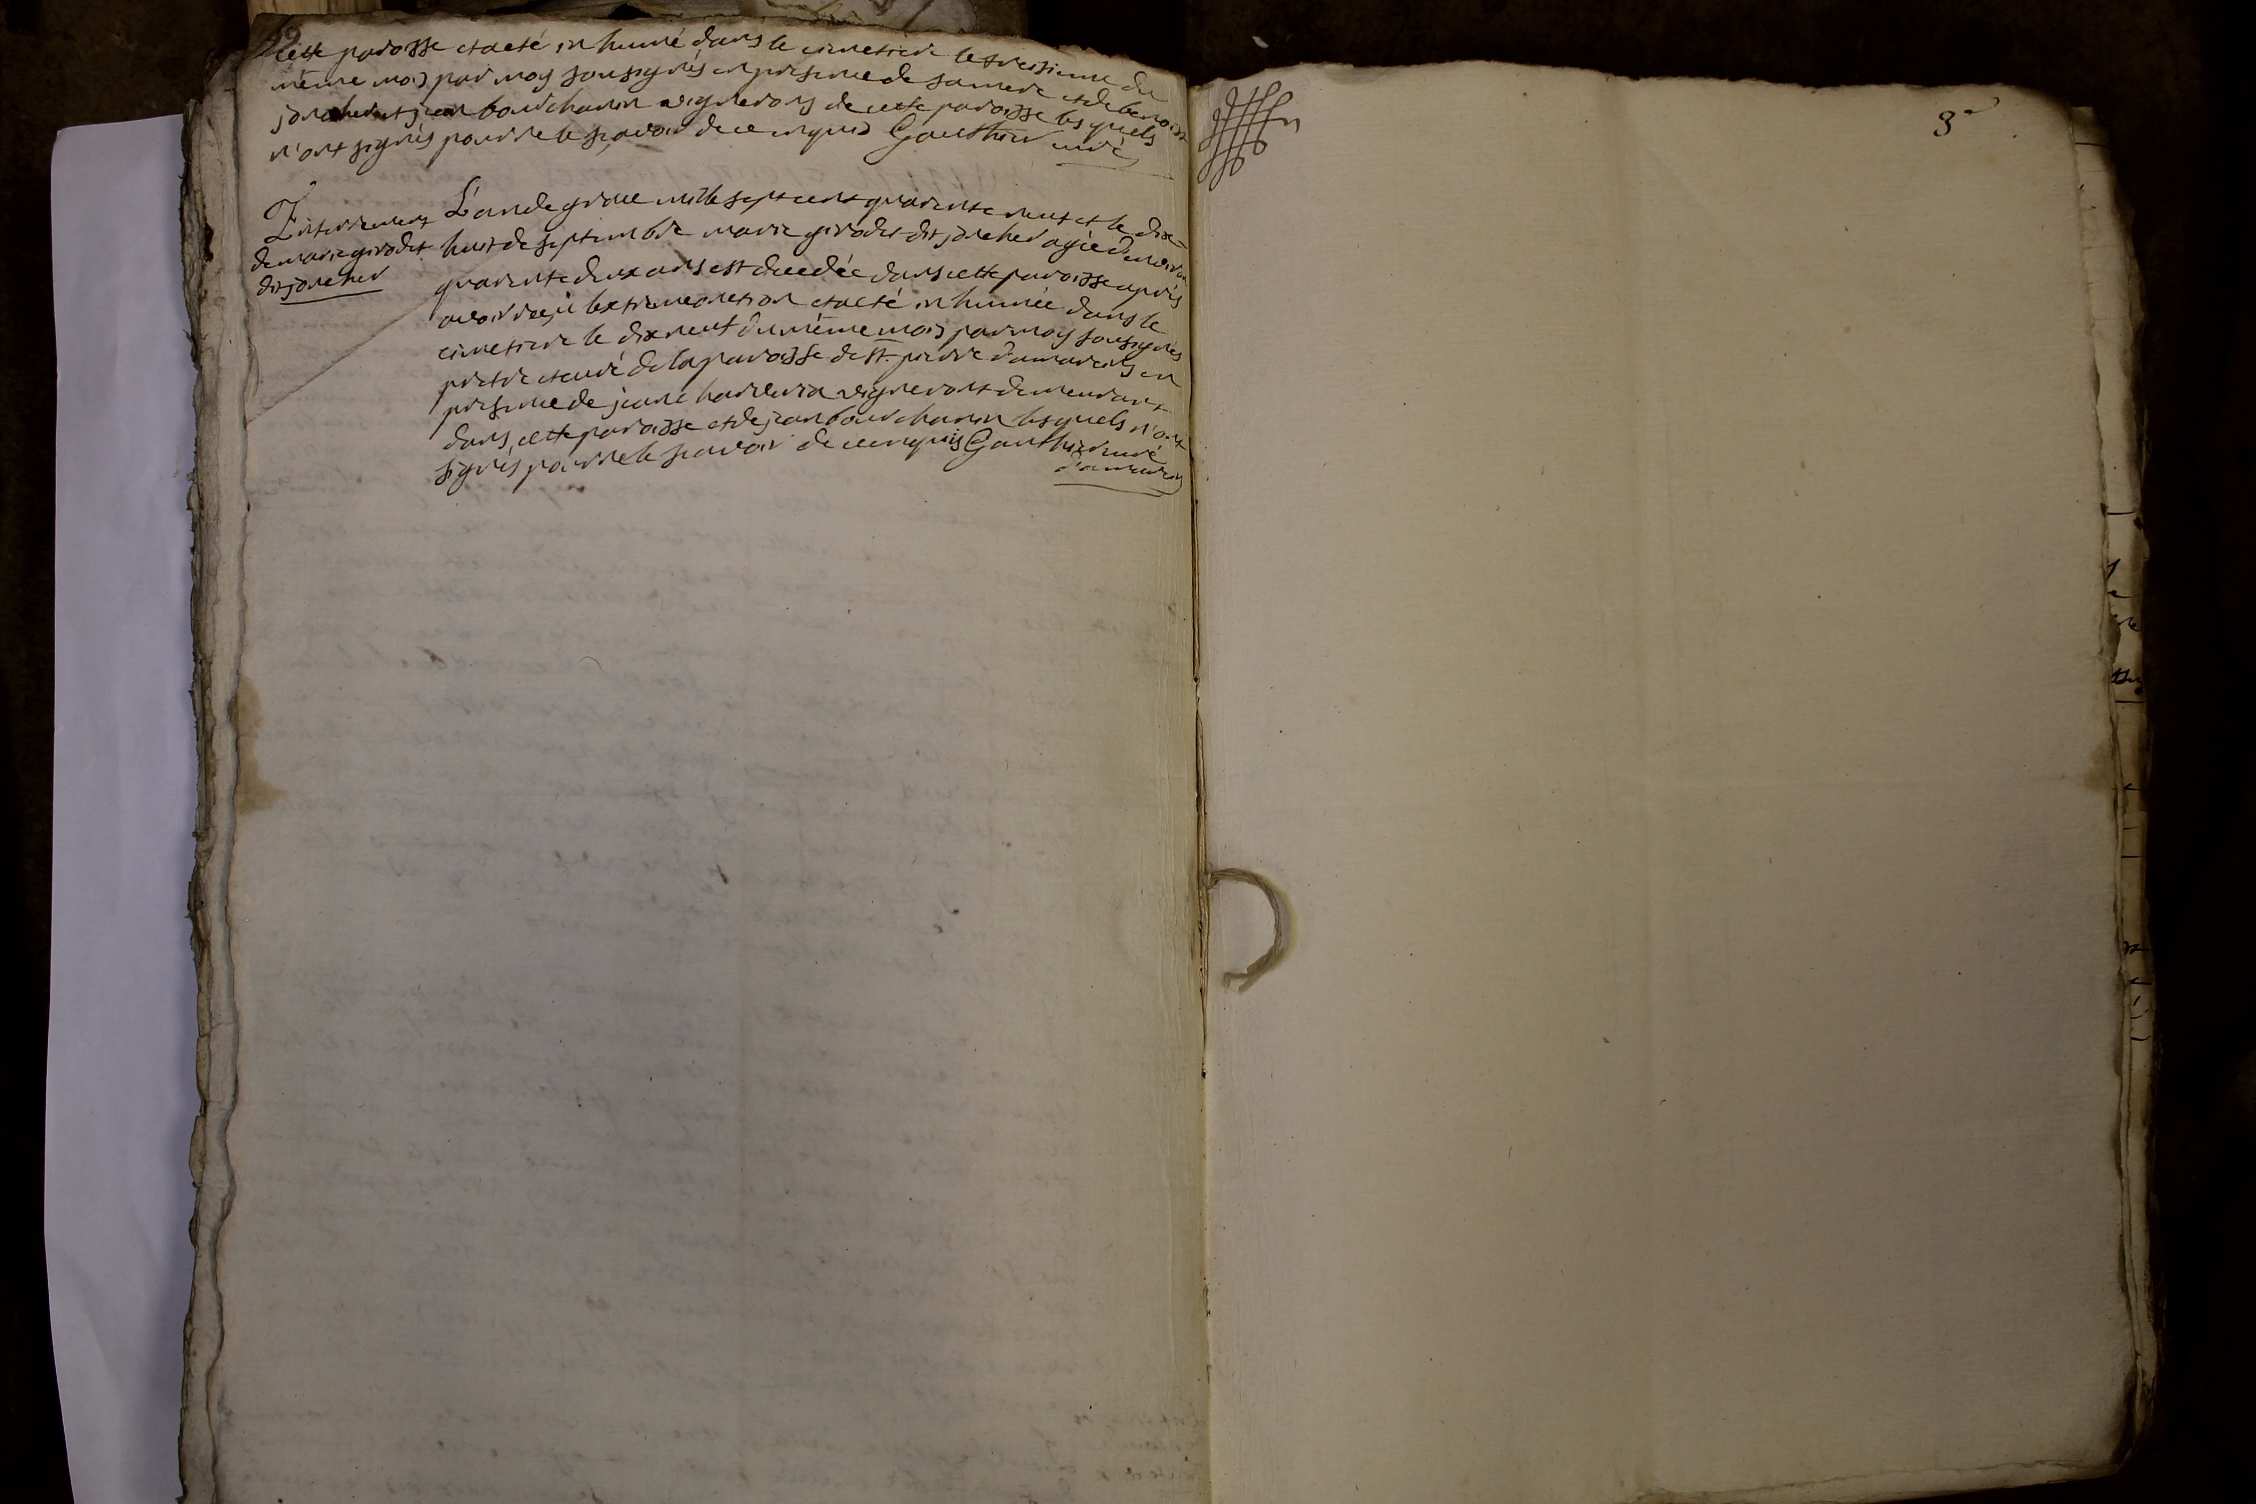 cette paroisse et a eté inhumé dans le cimetiere le treisieme du
même mois par moy sousignés en presence de sa mere et de benoist
joncher et jean bourcharin vignerons de cette paroisse lesquels
n'ont signés pour ne le sçavoir de ce enquis Gauthier curé
Enterrement
de marie girodet
dit joncher
L'an de grace mille sept cent quarente neuf et le dix
huit de septembre marie girodet dit joncher agée d'environ
quarente deux ans est decedée dans cette paroisse apres
avoir reçu l'extremonction et a eté inhumée dans le
cimetiere le dix neuf du même mois par moy sousignés
pretre et curé de la paroisse de st. pierre d'amareins en
presence de jean vigneront demeurant
dans cette paroisse et de jean bourcharin lesquels n'ont
signés pour ne le sçavoir de ce enquis Gauthier curé
d'amareins
3e